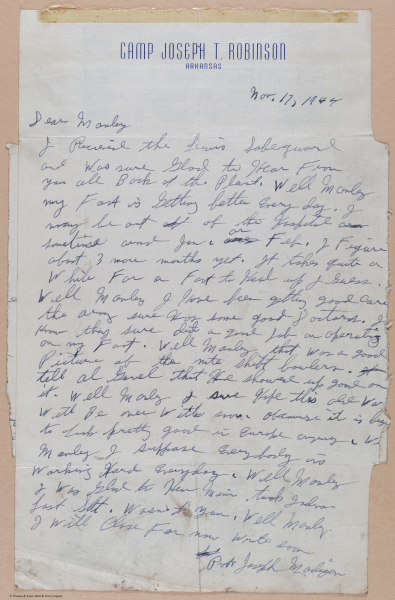 CAMP JOSEPH T. ROBINSON
ARKANSAS
Nov. 17, 1944
Dear Manley
I Received the Lewis Safeguard
and Was sure Glad to Hear From
you all Back of the Plant. Well Manley
my Foot is Getting better Every day. I
may be out of the Hospital
sometime around Jan. or Feb. I Figure
about 3 more months yet. It takes quite a
While For a Foot to Heal up I Guess.
Well Manley I Have been getting good Care
the army sure Has some good Doctors. I
know they sure did a good Job on operating
on my Foot. Well Manley that was a good
Picture of the nite shift bowlers.
tell Al that He showed up good on
it. Well Manley I sure Hope this old War
Will Be over With soon. Because it is beg
to look pretty good in Europe anyway. W
Manley I suppose Everybody is
Working Hard Everyday. Well Manley
I Was Glad to Hear took Indiana
last Sat. Wasn't you. Well Manley
I Will Close For now write soon
Pvt Joseph Madigan